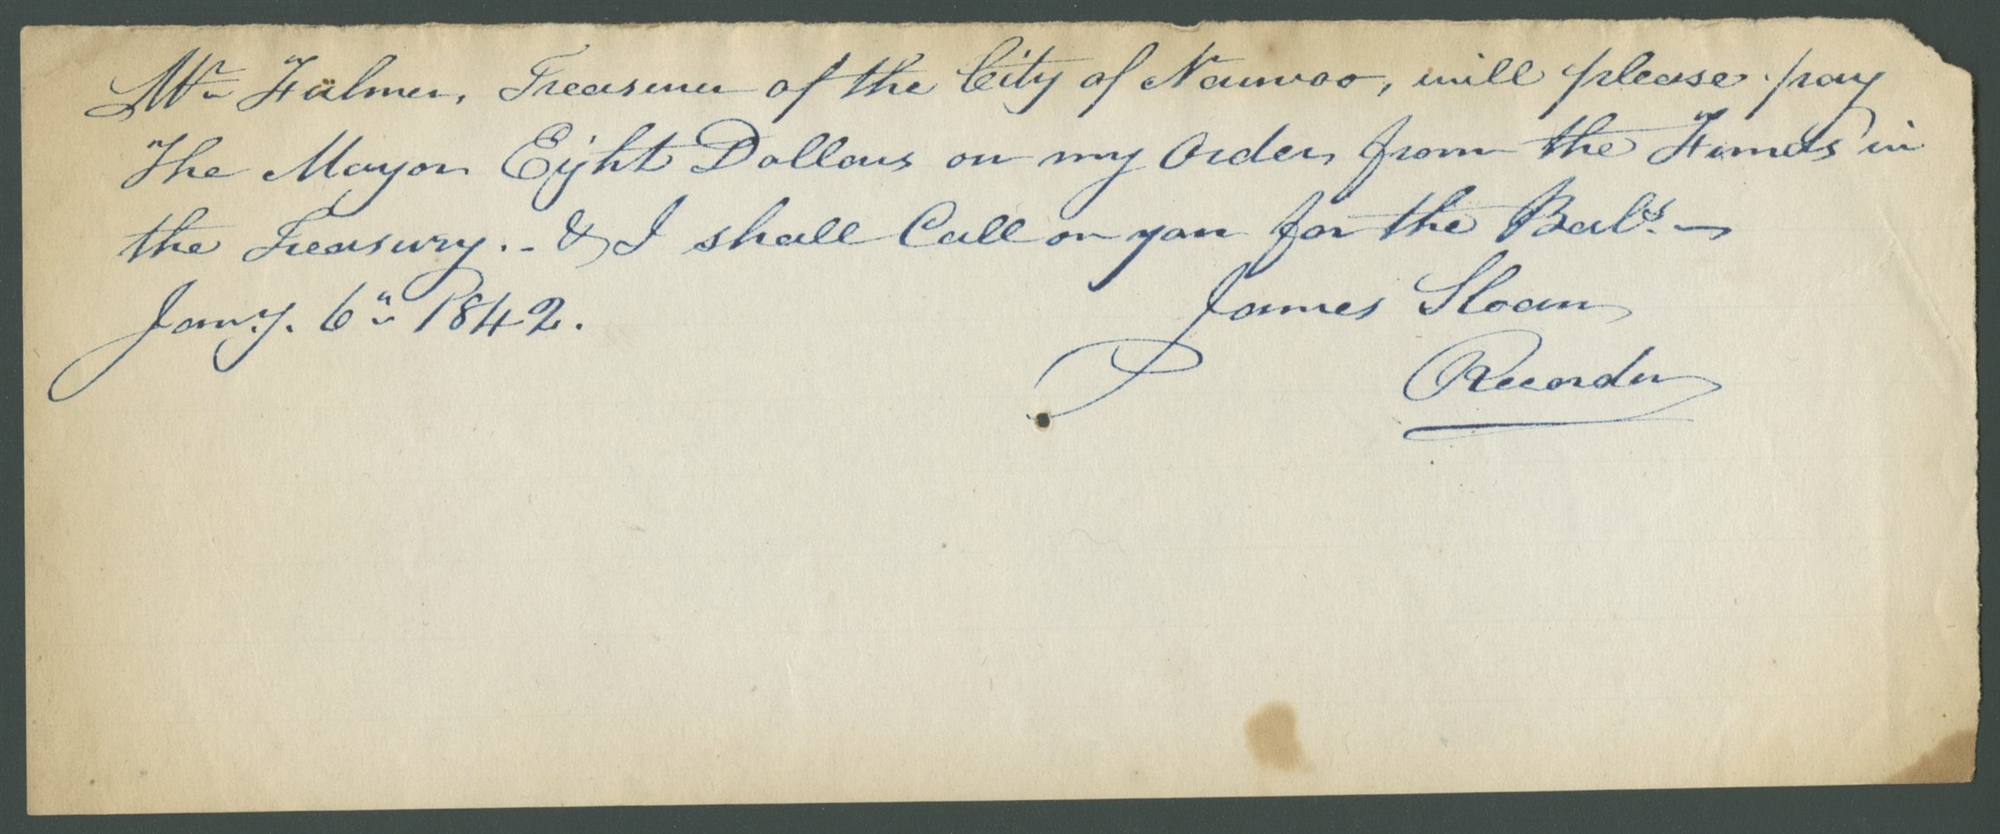 Mr. Fulmer, Treasurer of the City of Nauvoo, will please pay
The Mayor Eight Dollars on my Order, from the Funds in
the Treasury. - & I shall Call on you for the Bals. -
Jany. 6" 1842.
James Sloan
Recorder